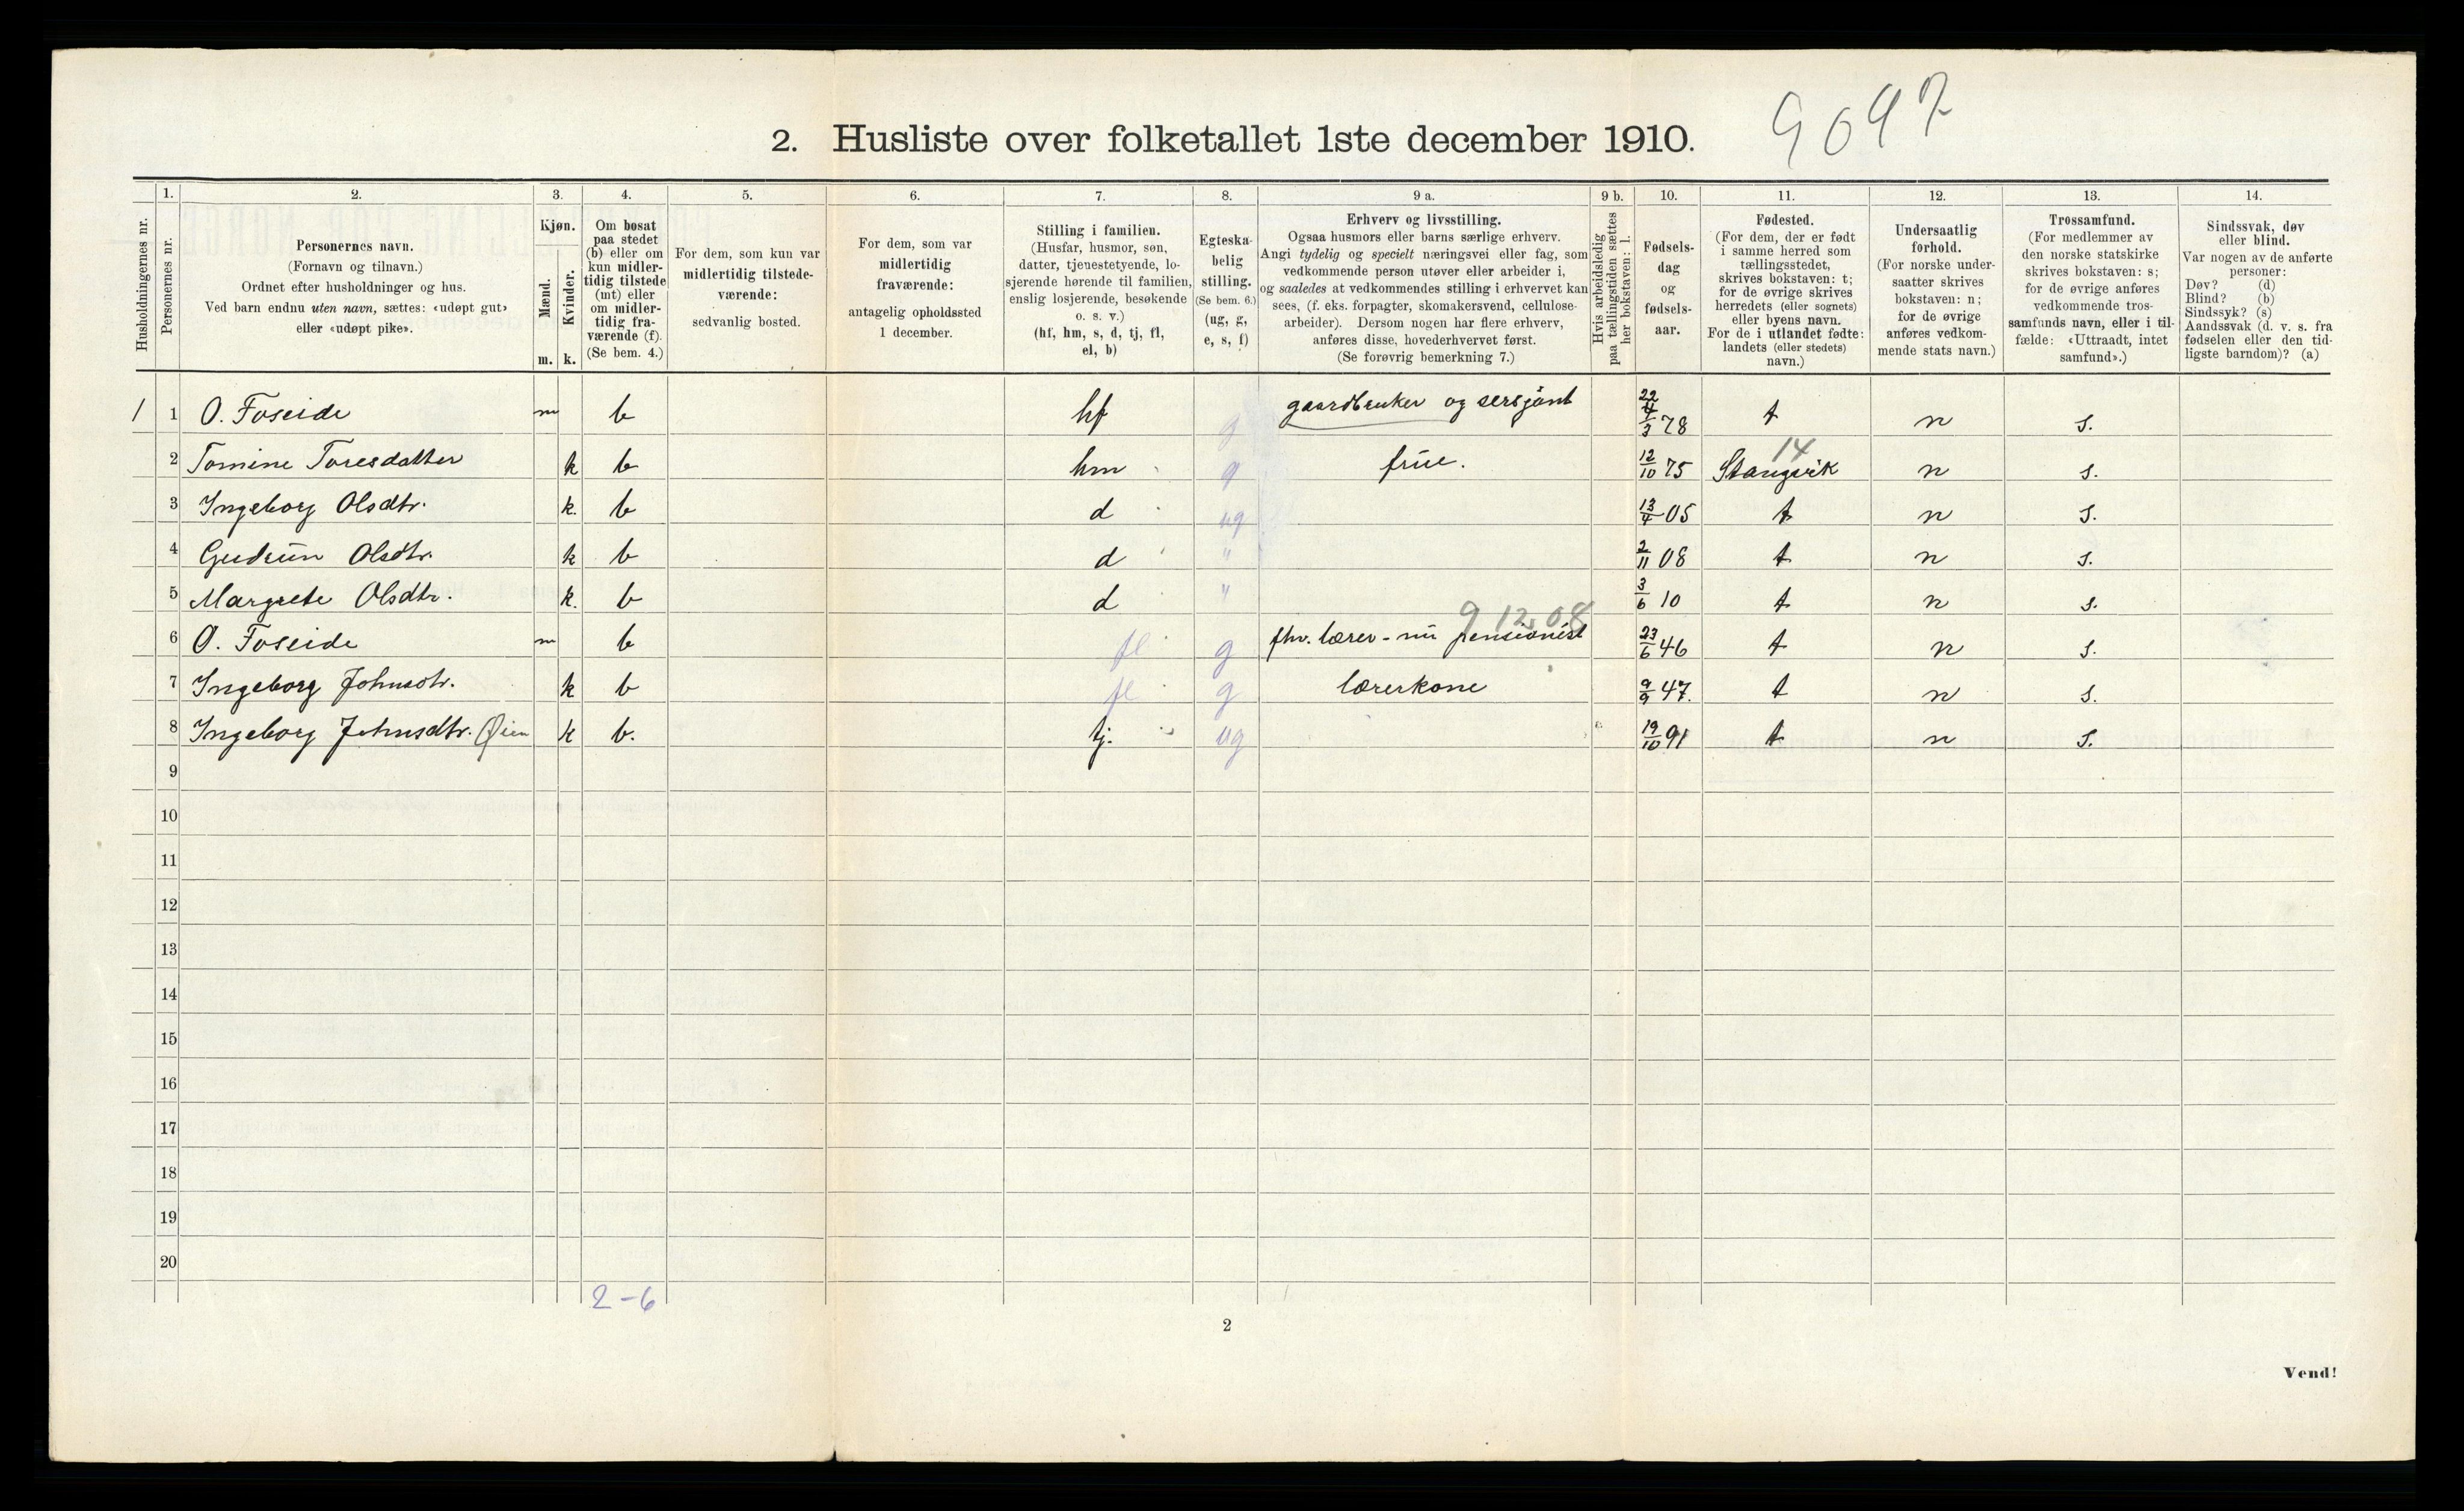 9097
2. Husliste over folketallet 1ste december 1910.
Husholdningernes nr.
1. Personernes nr.
2. Personernes navn.
(Fornavn og tilnavn.)
Ordnet efter husholdninger og hus.
Ved barn endnu uten navn, sættes: «udøpt gut»
eller «udøpt pike».
3. Kjøn.
Mænd. m.
Kvinder. k.
4. Om bosat
paa stedet
(b) eller om
kun midler-
tidig tilstede
(mt) eller
om midler-
tidig fra-
værende (f).
(Se bem. 4.)
5. For dem, som kun var
midlertidig tilstede-
værende:
sedvanlig bosted.
6. For dem, som var
midlertidig
fraværende:
antagelig opholdssted
1 december.
7. Stilling i familien.
(Husfar, husmor, søn,
datter, tjenestetyende, lo-
sjerende hørende til familien,
enslig losjerende, besøkende
o. s. v.)
(hf, hm, s, d, tj, fl,
el, b)
8. Egteska-
belig
stilling.
(Se bem. 6.)
(ug, g,
e, s, f)
9 a. Erhverv og livsstilling.
Ogsaa husmors eller barns særlige erhverv.
Angi tydelig og specielt næringsvei eller fag, som
vedkommende person utøver eller arbeider i,
og saaledes at vedkommendes stilling i erhvervet kan
sees, (f. eks. forpagter, skomakersvend, cellulose-
arbeider). Dersom nogen har flere erhverv,
anføres disse, hovederhvervet først.
(Se forøvrig bemerkning 7.)
9 b. Hvis arbeidsledig
paa tællingstiden sættes
her bokstaven: l.
10. Fødsels-
dag
og
fødsels-
aar.
11. Fødested.
(For dem, der er født
i samme herred som
tællingsstedet,
skrives bokstaven: t;
for de øvrige skrives
herredets (eller sognets)
eller byens navn.
For de i utlandet fødte:
landets (eller stedets)
navn.)
12. Undersaatlig
forhold.
(For norske under-
saatter skrives
bokstaven: n;
for de øvrige
anføres vedkom-
mende stats navn.)
13. Trossamfund.
(For medlemmer av
den norske statskirke
skrives bokstaven: s;
for de øvrige anføres
vedkommende tros-
samfunds navn, eller i til-
fælde: «Uttraadt, intet
samfund».)
14. Sindssvak, døv
eller blind.
Var nogen av de anførte
personer:
Døv? (d)
Blind? (b)
Sindssyk? (s)
Aandssvak (d. v. s. fra
fødselen eller den tid-
ligste barndom)? (a)
1 1 O. Foseide m b hf g gaardbruker og sersjant 22/3 78 t n s.
14
2 Tomine Toresdatter k b hm g frue. 12/10 75 Stangvik n s.
3 Ingeborg Olsdtr. k. b d ug 13/4 05 t n s.
4 Gudrun Olsdtr. k b d " 2/11 08 t n s.
5 Margrete Olsdtr. k. b d " 3/6 10 t n s.
9 12.08
6 O. Foseide m b fl g fhv. lærer - nu pensionist 23/6 46 t n s.
7 Ingeborg Johnsdtr. k b fl g lærerkone 9/9 47. t n s.
8 Ingeborg Johnsdtr. Øien k b. tj. ug 19/10 91 t n s.
9
10
11
12
13
14
15
16
17
18
19
20
2-6
2
Vend!